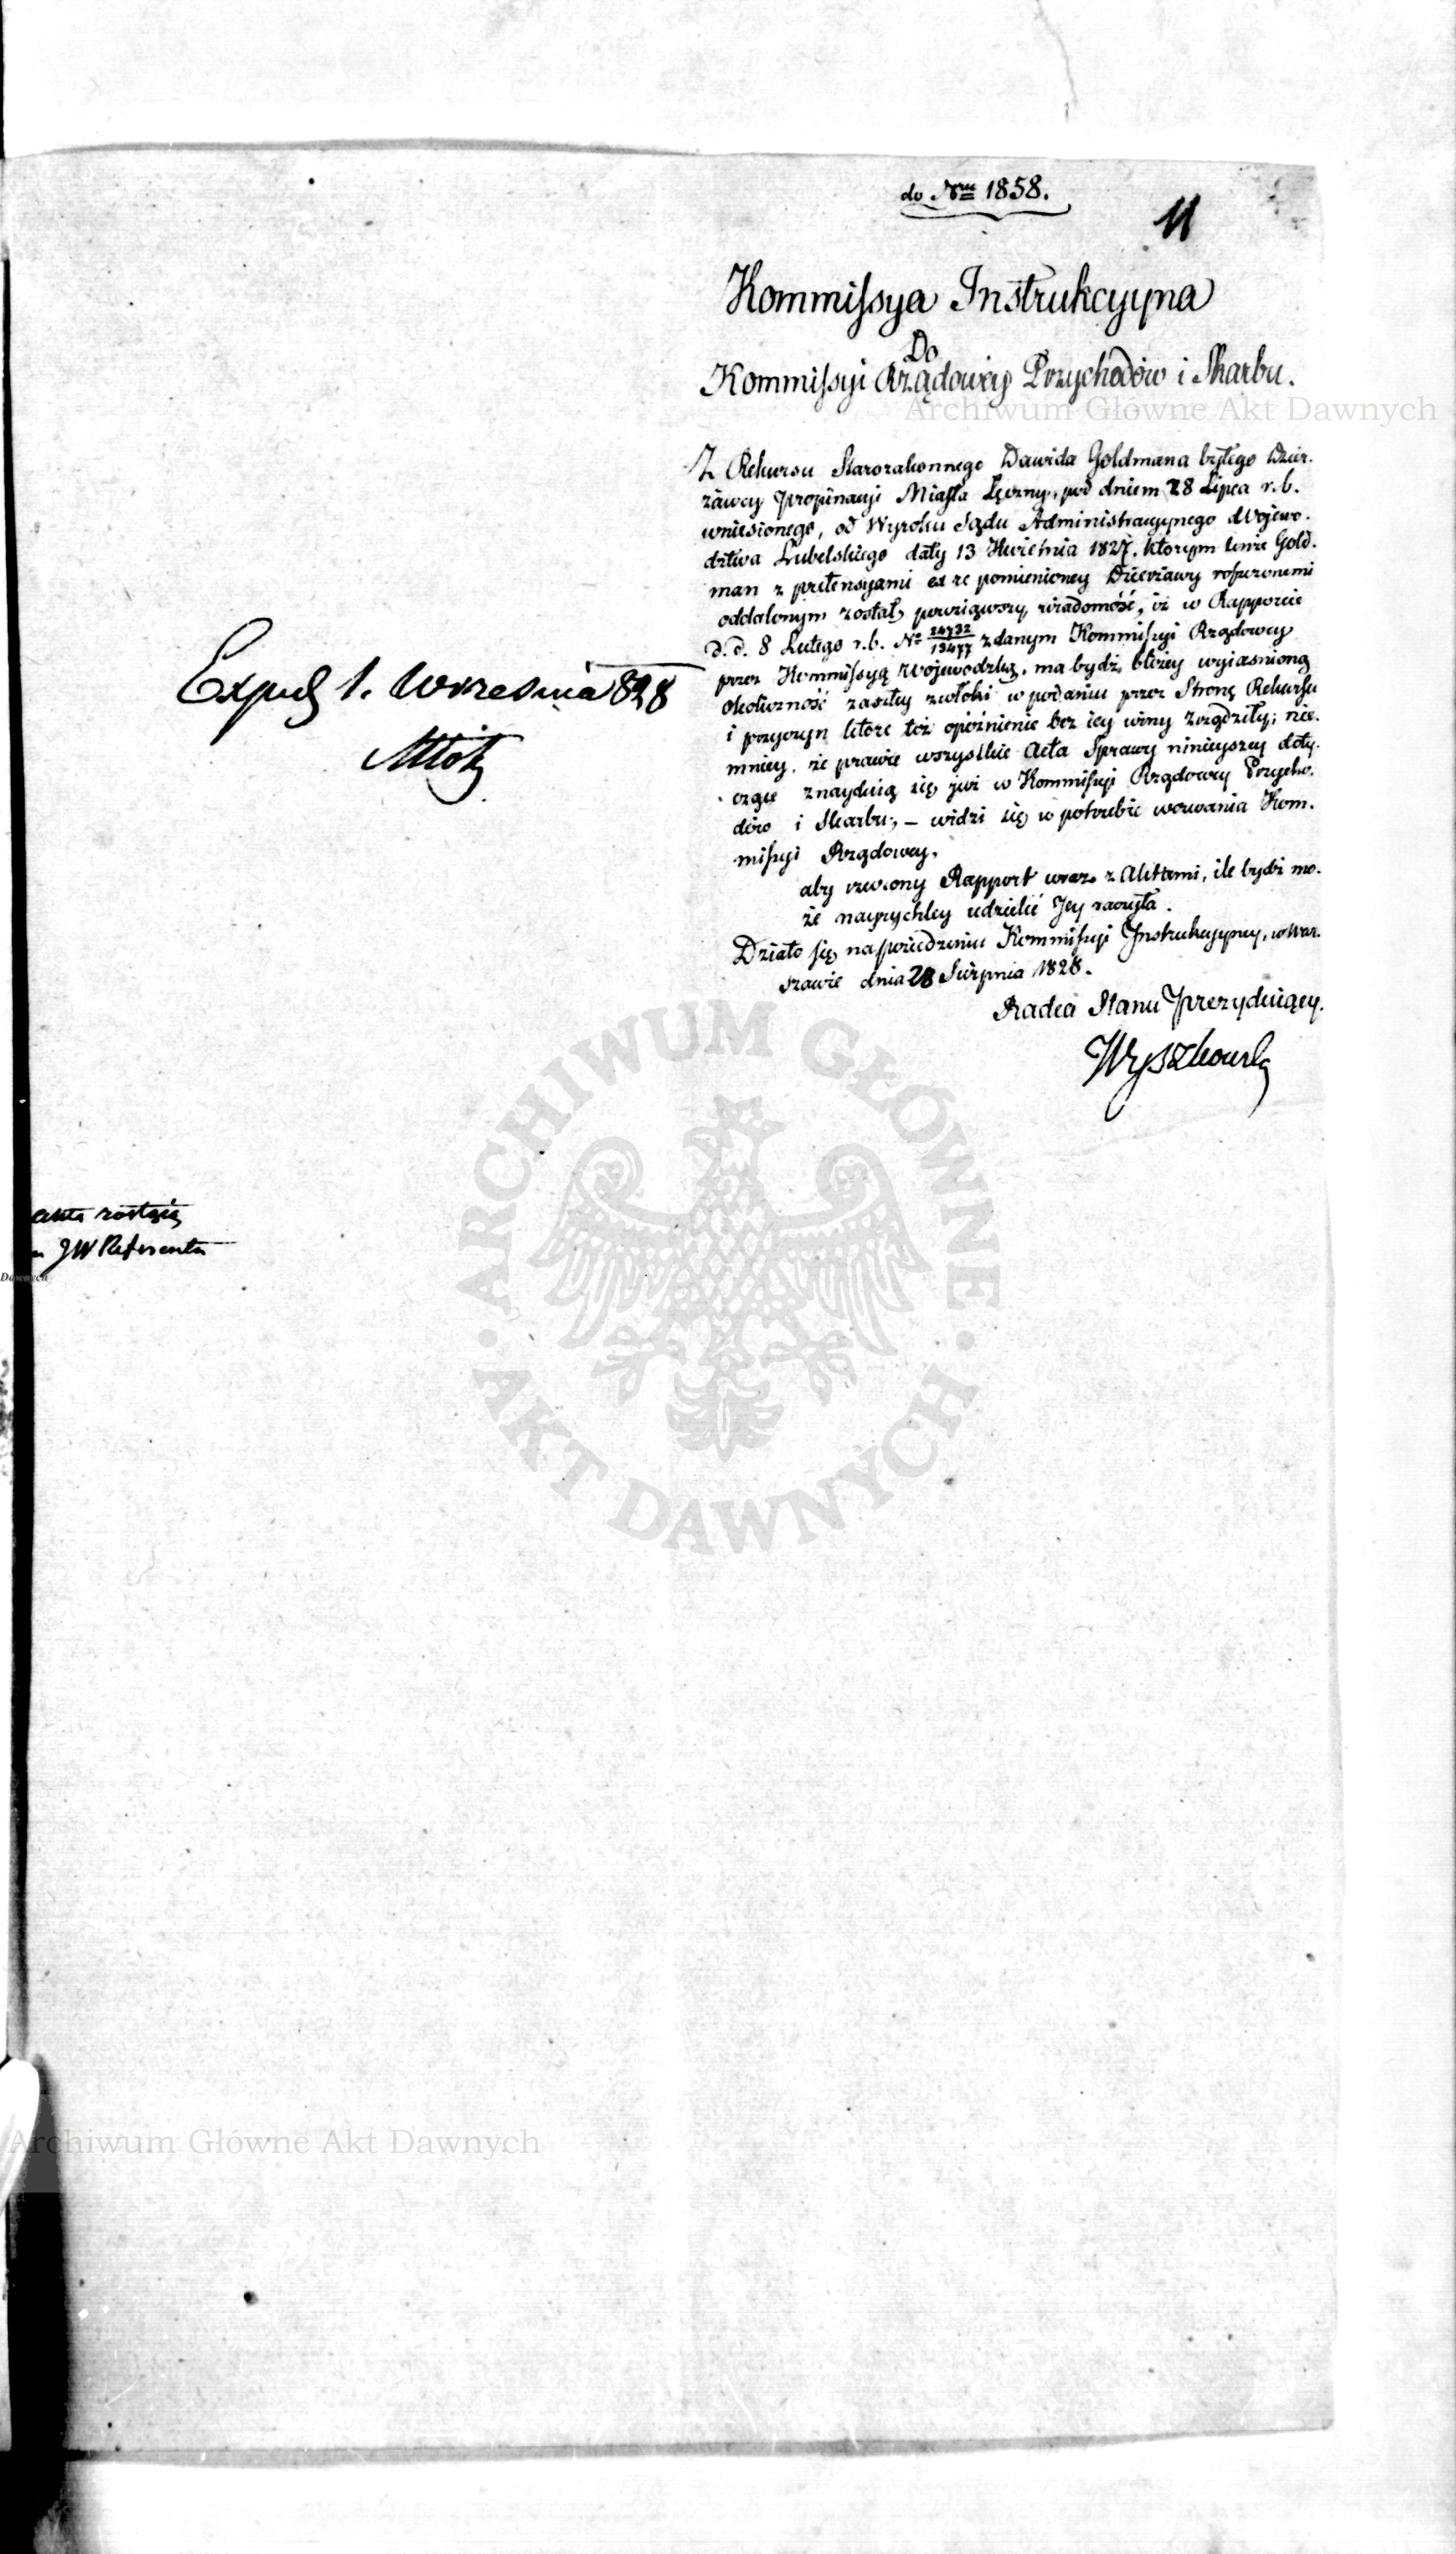 do Nru 1858.
11
Kommissya Instrukcyyna
Do
Kommissyi Rządowey Przychodów i Skarbu.
Archiwum Główne Akt Dawnych
Z Rekursu Starozakonnego Dawida Goldmana byłego Dzier-
żawcy Propinacyi Miasta Łęczny, pod dniem 28 Lipca r. b.
wniesionego, od Wyroku Sądu Administracyynego Wojewo-
dztwa Lubelskiego daty 13 Kwietnia 1827. którym tenże Gold-
man z pretensyami ze pomienioney Dzierżawy roszczonemi
oddalonym został, powziąwszy wiadomość, iż w Rapporcie
d. d. 8 Lutego r. b. No 24732/13477 zdanym Kommissyi Rządowey
przez Kommissyą Wojewodzką, ma bydź bliżey wyiaśnioną
okoliczność zaszłey zwłoki w podaniu przez Stronę Rekursu
i przyczyn które też opóźnienie bez iey winy zrządziły; nie-
mniey, że prawie wszystkie Acta Sprawy ninieyszey doty-
czące znayduią się już w Kommissyi Rządowey Przycho-
dów i Skarbu, – widzi się w potrzebie wezwania Kom-
missyi Rządowey,
aby rzeczony Rapport wraz z Aktami, ile bydź mo-
że nayrychley udzielić Jey raczyła.
Działo się na posiedzeniu Kommissyi Instrukcyyney, w War-
szawie dnia 28 Sierpnia 1828.
Radca Stanu Prezyduiący.
Wyszkowski
Exped 1. Wrzesnia 828
JW Referenta
Dawnych
ARCHIWUM GŁÓWNE AKT DAWNYCH
Archiwum Główne Akt Dawnych